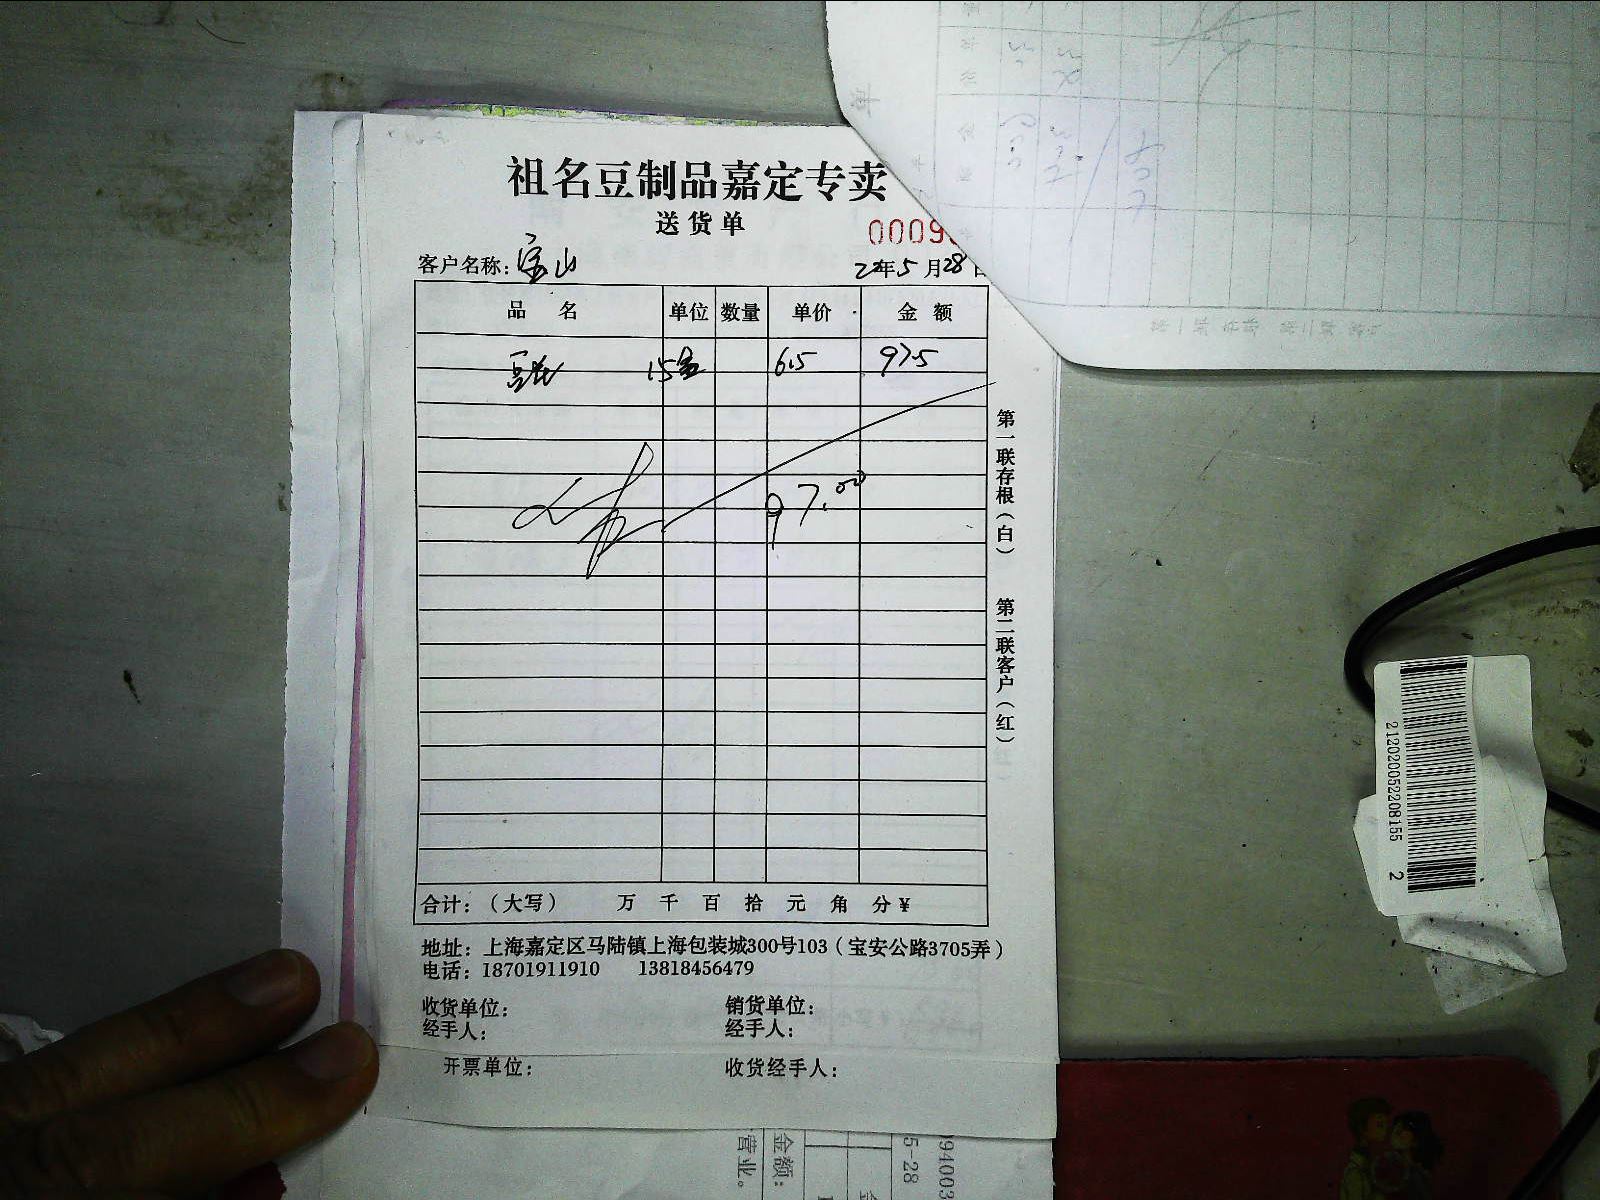 祖名豆制品嘉定专卖
送货单
0009
客户名称：宝山
22年5月28日
品名 单位 数量 单价 金额
15 6.5 97.5
97.00
第一联存根（白）
第二联客户（红）
合计：（大写） 万 千 百 拾 元 角 分 ¥
地址：上海嘉定区马陆镇上海包装城300号103（宝安公路3705弄）
电话：18701911910 13818456479
收货单位： 销货单位：
经手人： 经手人：
开票单位： 收货经手人：
2120200522208155 2
994003
5-28
金额：
营业。